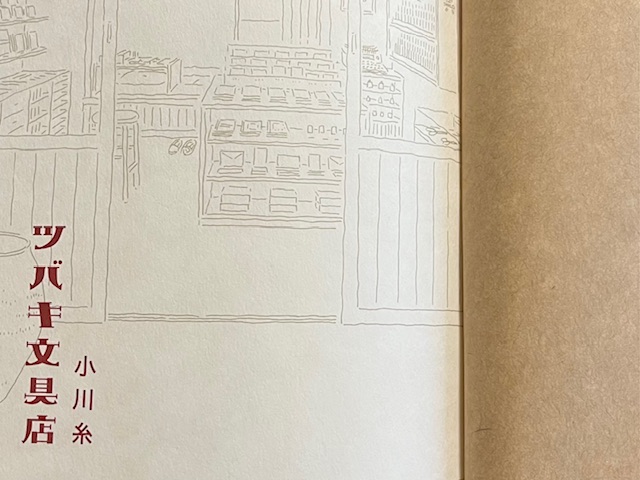 ツバキ文具店
小川糸